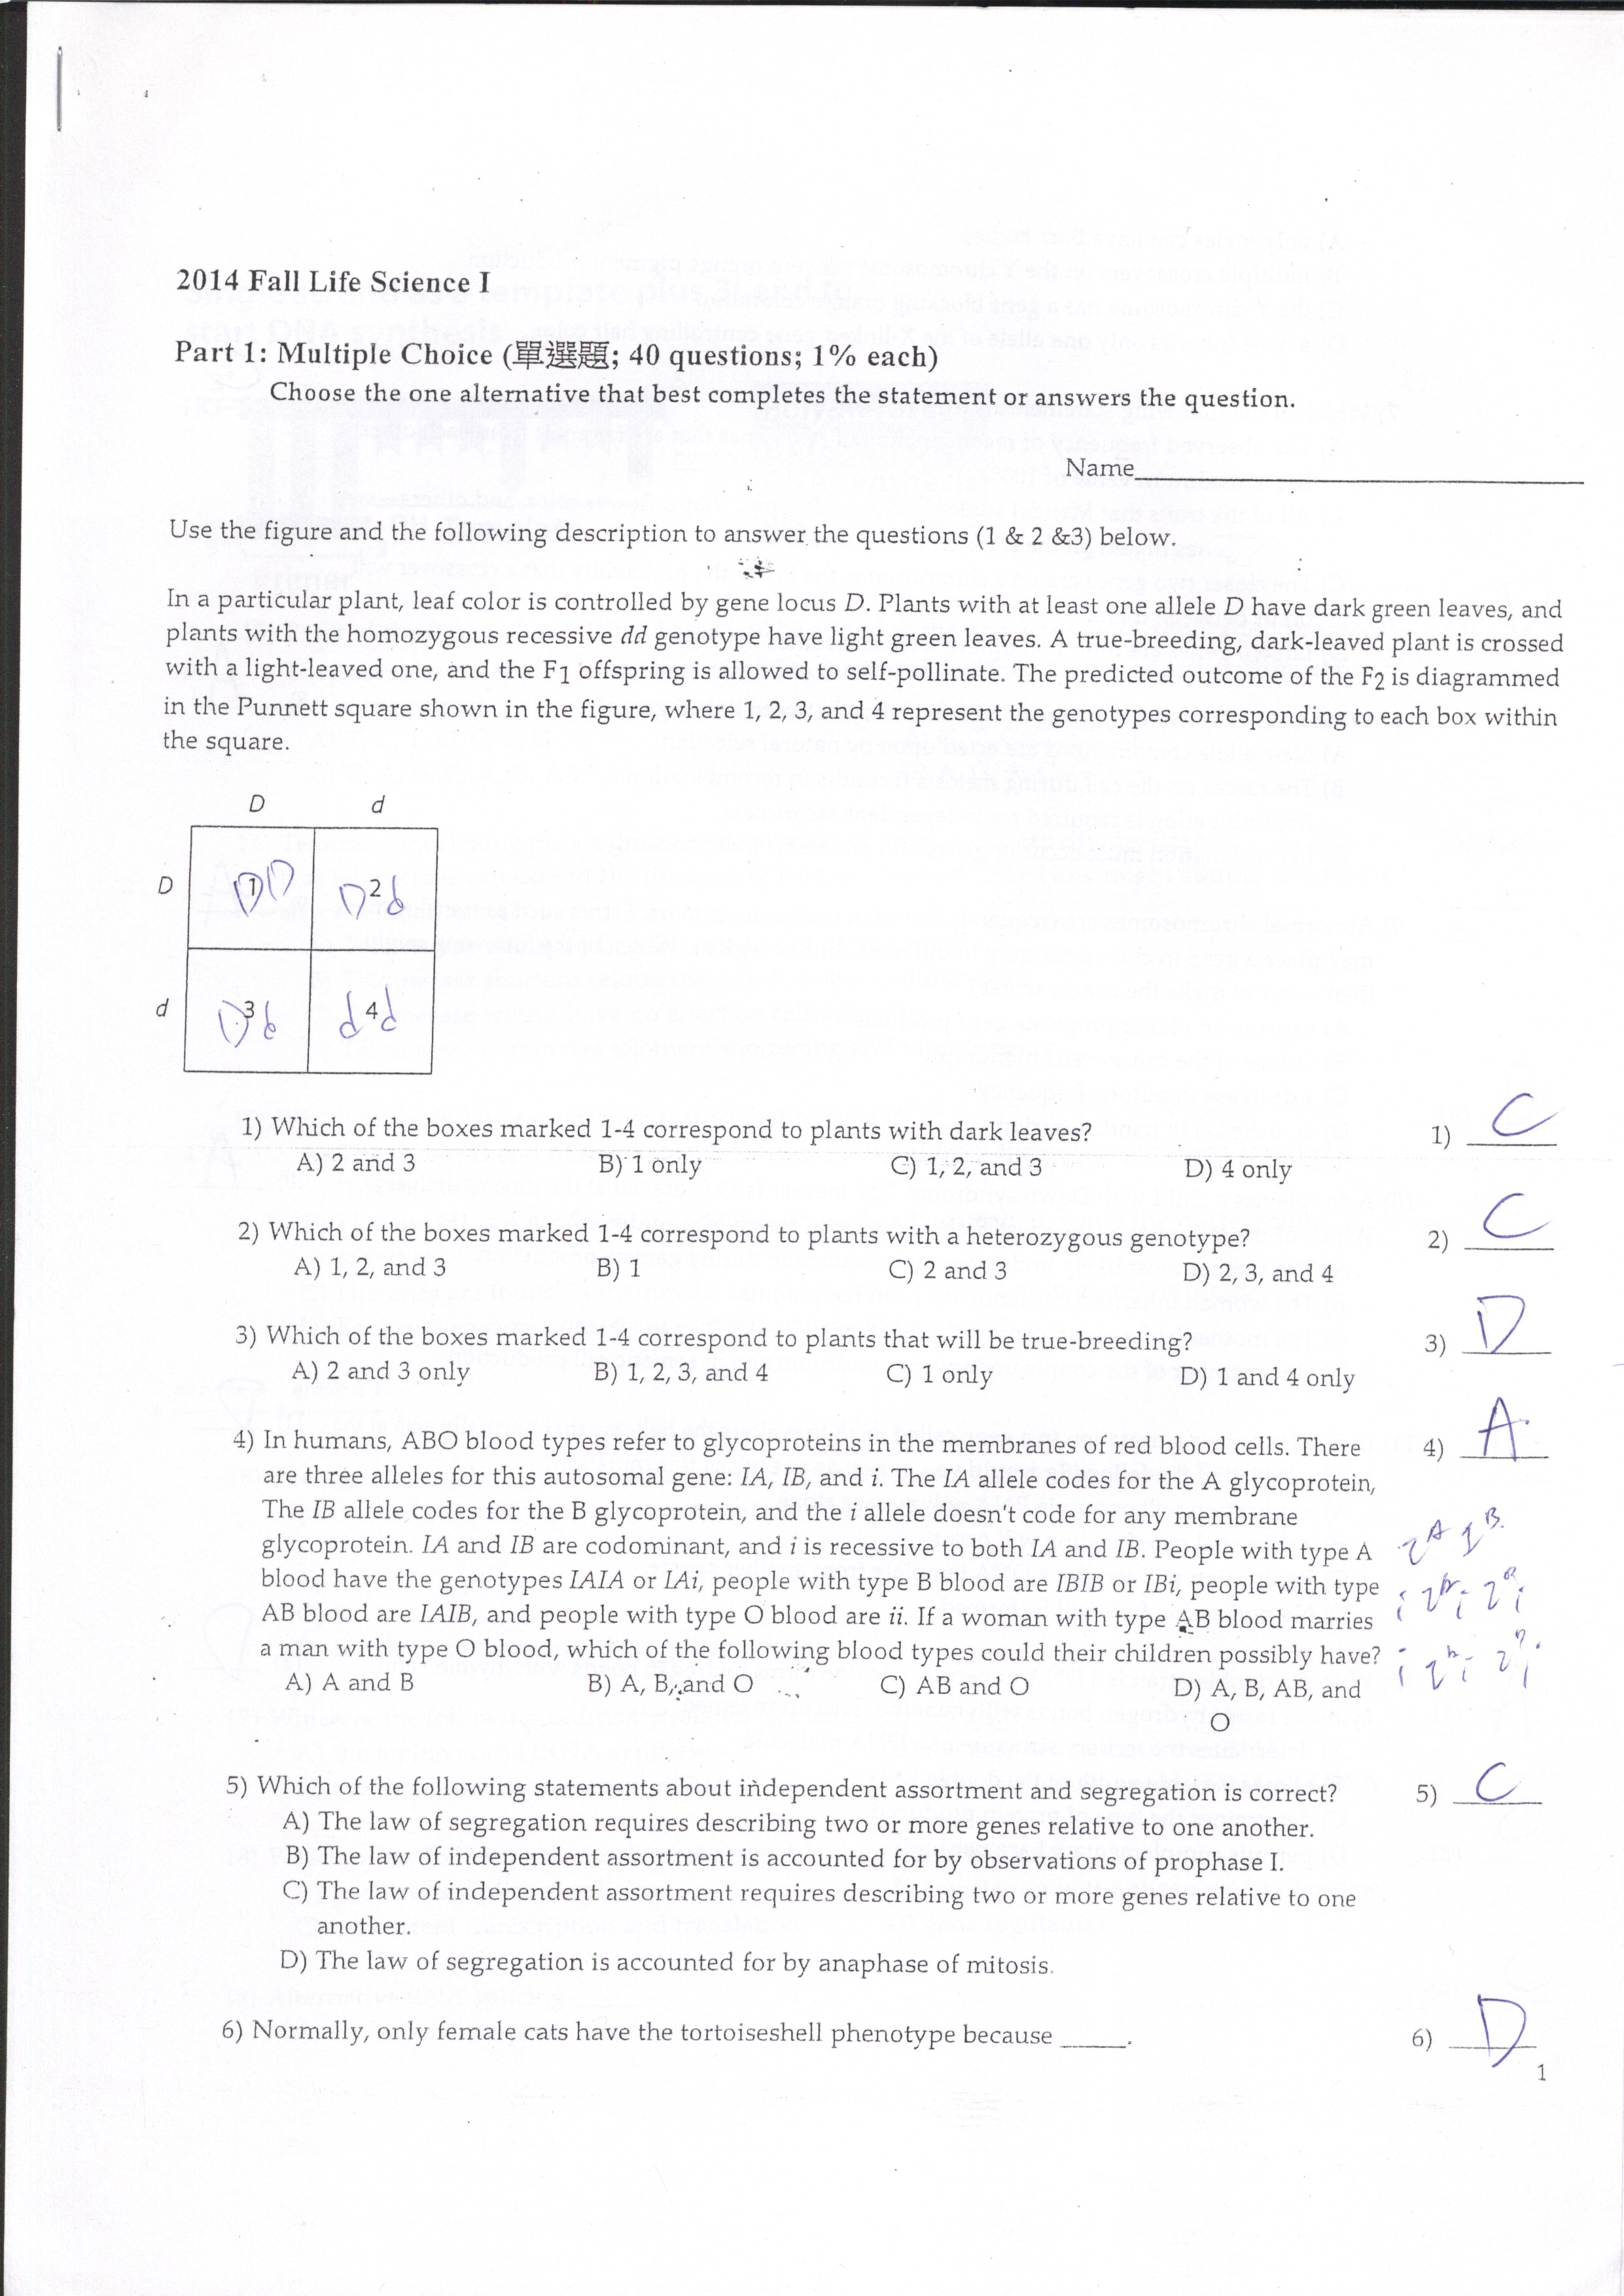 2014 Fall Life Science I
Part 1: Multiple Choice (單選題; 40 questions; 1% each)
Choose the one alternative that best completes the statement or answers the question.
Name
Use the figure and the following description to answer the questions (1 & 2 &3) below.
In a particular plant, leaf color is controlled by gene locus D. Plants with at least one allele D have dark green leaves, and
plants with the homozygous recessive dd genotype have light green leaves. A true-breeding, dark-leaved plant is crossed
with a light-leaved one, and the F1 offspring is allowed to self-pollinate. The predicted outcome of the F2 is diagrammed
in the Punnett square shown in the figure, where 1, 2, 3, and 4 represent the genotypes corresponding to each box within
the square.
D d
D 1 DD 2 Dd
d 3 Dd 4 dd
1) Which of the boxes marked 1-4 correspond to plants with dark leaves? 1) C
A) 2 and 3 B) 1 only C) 1, 2, and 3 D) 4 only
2) Which of the boxes marked 1-4 correspond to plants with a heterozygous genotype? 2) C
A) 1, 2, and 3 B) 1 C) 2 and 3 D) 2, 3, and 4
3) Which of the boxes marked 1-4 correspond to plants that will be true-breeding? 3) D
A) 2 and 3 only B) 1, 2, 3, and 4 C) 1 only D) 1 and 4 only
4) In humans, ABO blood types refer to glycoproteins in the membranes of red blood cells. There 4) A
are three alleles for this autosomal gene: IA, IB, and i. The IA allele codes for the A glycoprotein,
The IB allele codes for the B glycoprotein, and the i allele doesn't code for any membrane
glycoprotein. IA and IB are codominant, and i is recessive to both IA and IB. People with type A
blood have the genotypes IAIA or IAi, people with type B blood are IBIB or IBi, people with type
AB blood are IAIB, and people with type O blood are ii. If a woman with type AB blood marries
a man with type O blood, which of the following blood types could their children possibly have?
A) A and B B) A, B, and O C) AB and O D) A, B, AB, and
O
5) Which of the following statements about independent assortment and segregation is correct? 5) C
A) The law of segregation requires describing two or more genes relative to one another.
B) The law of independent assortment is accounted for by observations of prophase I.
C) The law of independent assortment requires describing two or more genes relative to one
another.
D) The law of segregation is accounted for by anaphase of mitosis.
6) Normally, only female cats have the tortoiseshell phenotype because _____. 6) D
1